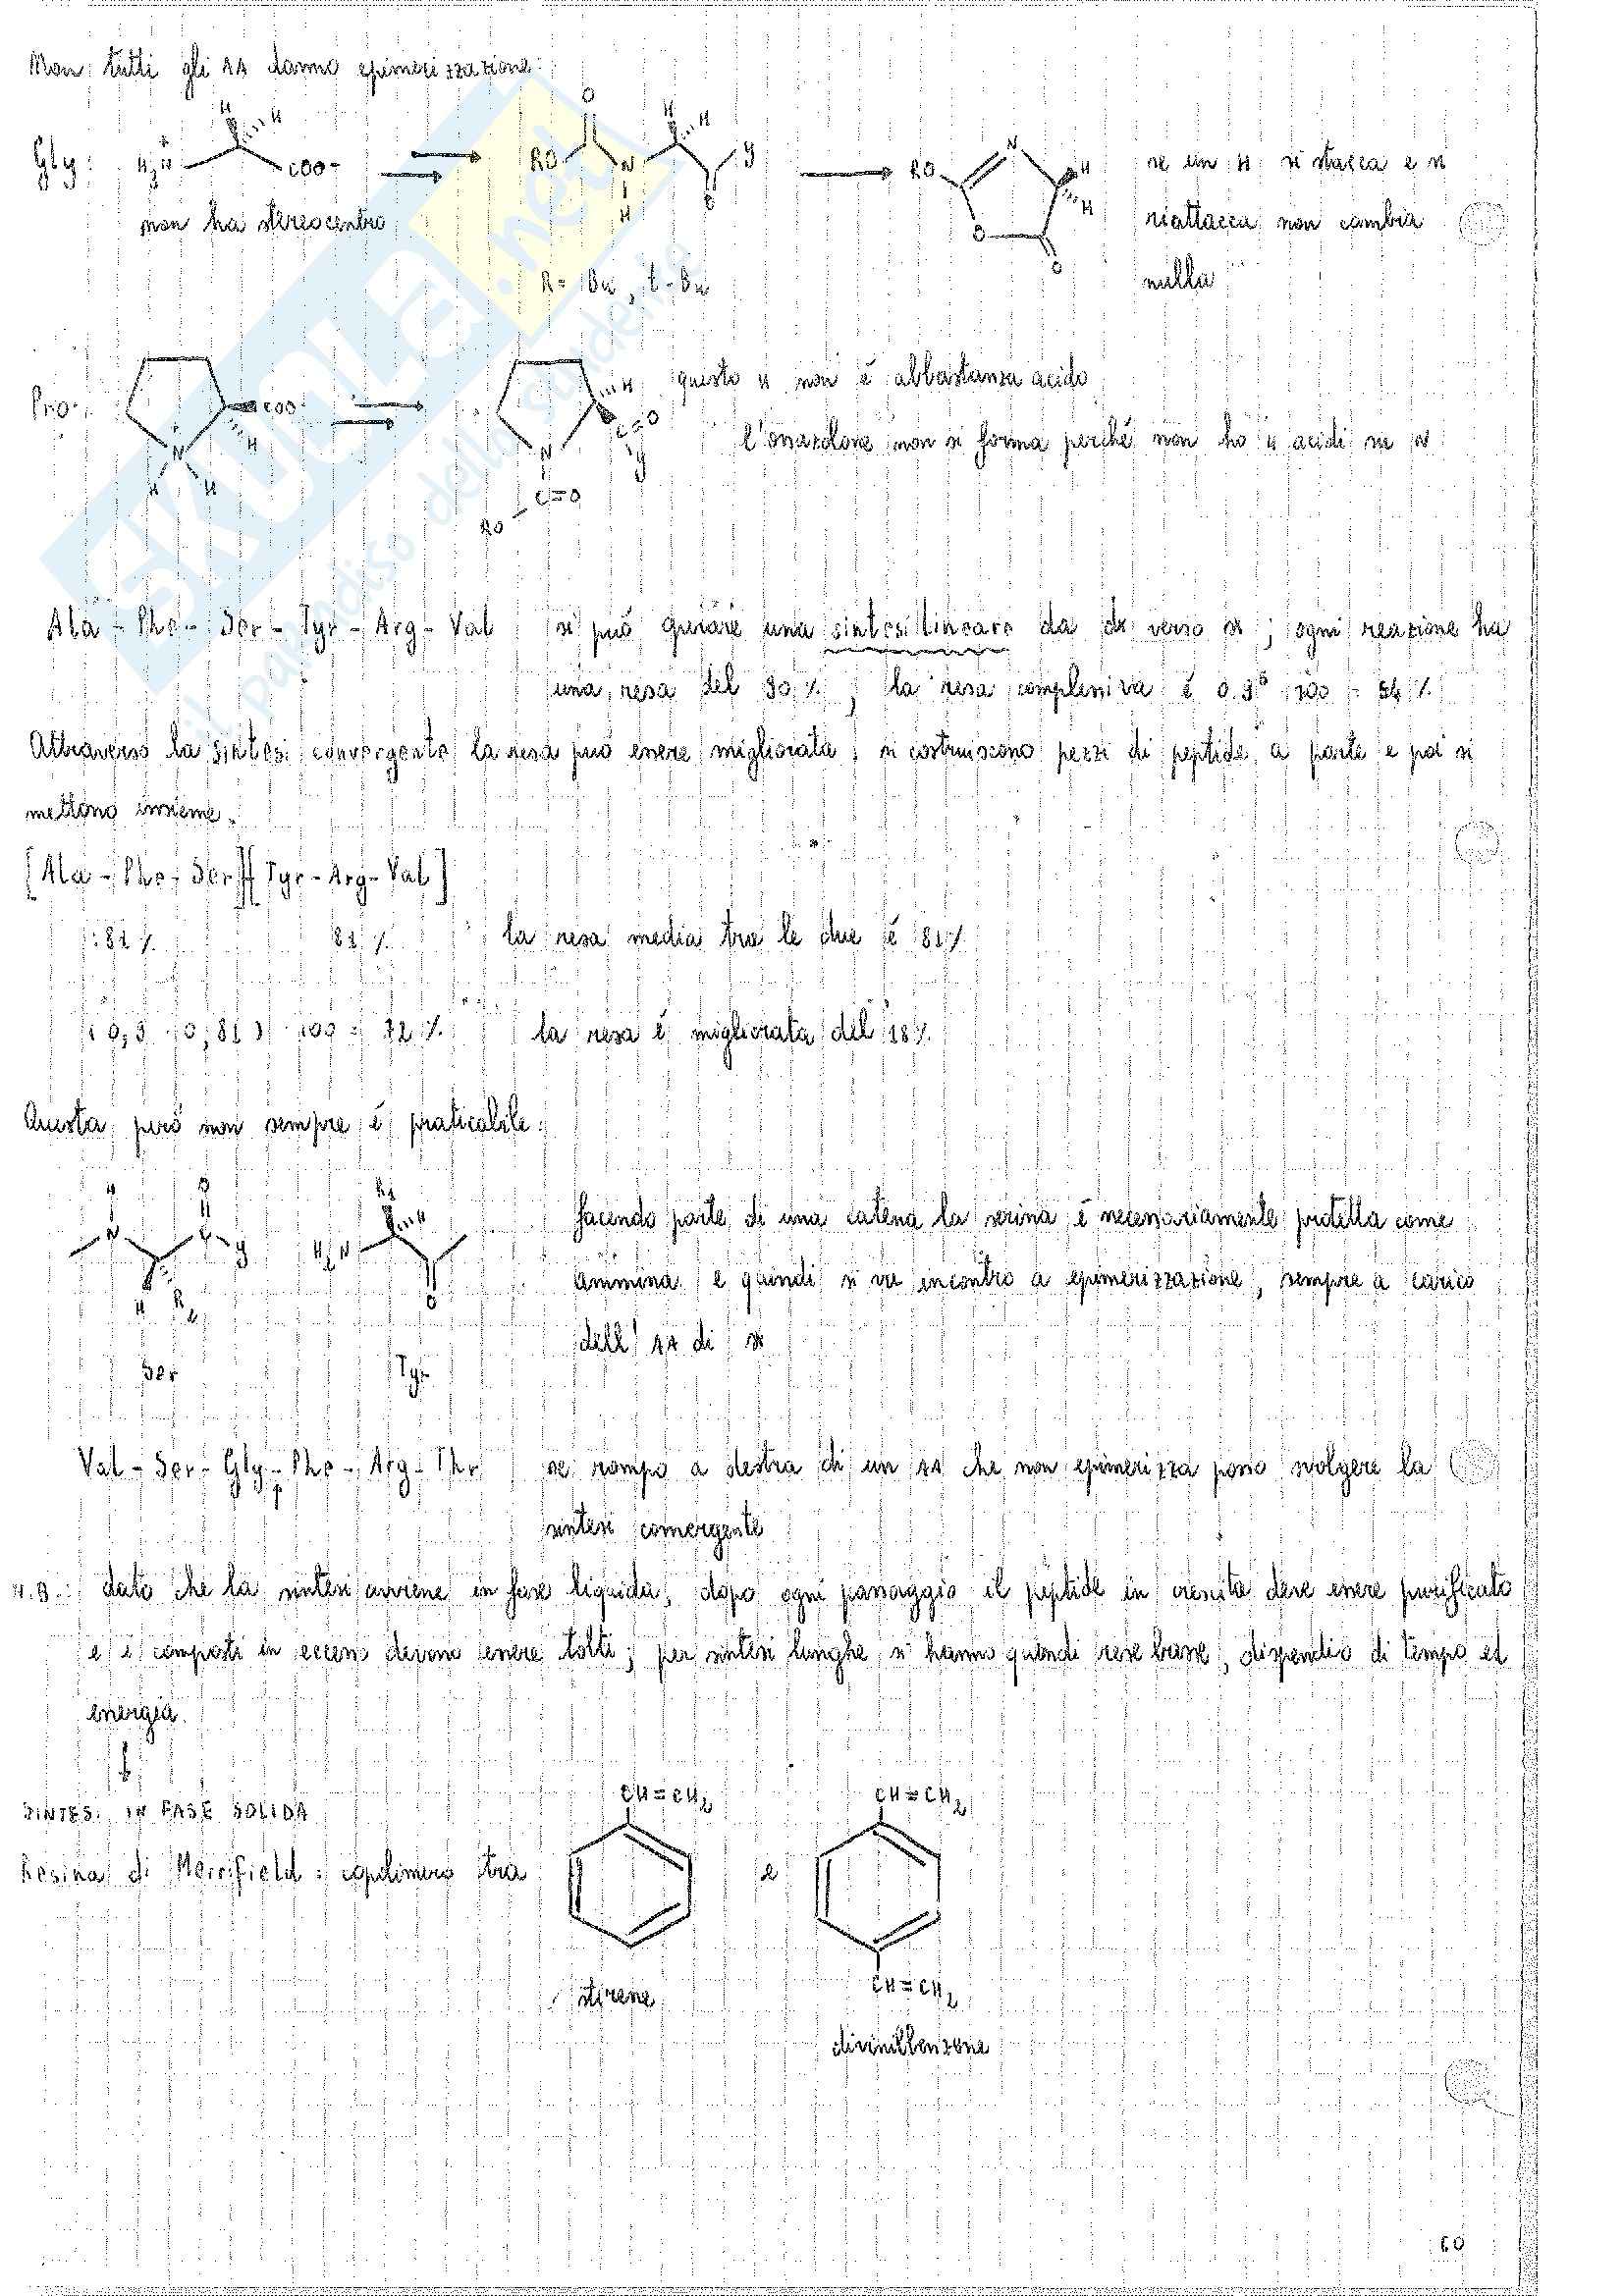 Non tutti gli AA danno epimerizzazione:
Gly: H₃N⁺ H H COO⁻ RO O N H H H O Y RO N H H O O se un H si stacca e si
non ha stereocentro riattacca non cambia
R = Bu, t-Bu nulla
Pro: COO⁻ H N⁺ H H N H C=O Y C=O RO questo H non è abbastanza acido
l'oxazolone non si forma perché non ho H acidi su N
Ala - Phe - Ser - Tyr - Arg - Val si può una sintesi lineare da dx verso sx; ogni reazione ha
una resa del 90%; la resa complessiva è 100 = %
Attraverso la sintesi convergente la resa può essere migliorata; si costruiscono pezzi di peptide a parte e poi si
mettono insieme.
[Ala - Phe - Ser][Tyr - Arg - Val]
81% 81% la resa media tra le due è 81%
(0,9 · 0,81) · 100 = 72% la resa è migliorata del 18%
Questa però non sempre è praticabile:
H N O C Y H R₂ H₂N R₁ H O facendo parte di una catena la serina è necessariamente protetta come
ammina e quindi si va incontro a epimerizzazione, sempre a carico
dell'AA di sx
Ser Tyr
Val - Ser - Gly - Phe - Arg - Thr se rompo a destra di un AA che non epimerizza posso svolgere la
sintesi convergente
N.B.: dato che la sintesi avviene in fase liquida, dopo ogni passaggio il peptide in crescita deve essere purificato
e i composti in eccesso devono essere tolti; per sintesi lunghe si hanno quindi rese basse, dispendio di tempo ed
energia.
SINTESI IN FASE SOLIDA CH=CH₂ CH=CH₂
Resina di Merrifield: copolimero tra e
CH=CH₂
stirene
divinilbenzene
60